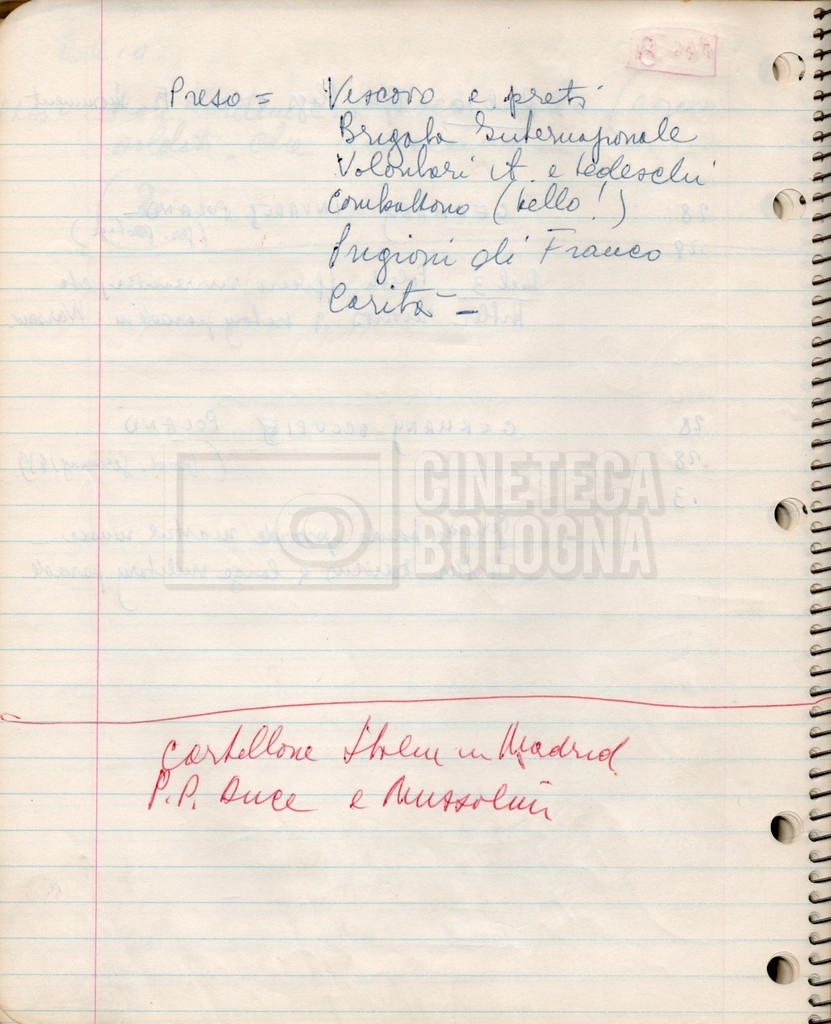 Preso = Vescovo e preti
Brigata Internazionale
Volontari it. e tedeschi
Combattono (bello!)
Prigioni di Franco
Carità —
CINETECA
BOLOGNA
Cartellone in Madrid
P.P. Duce e Mussolini